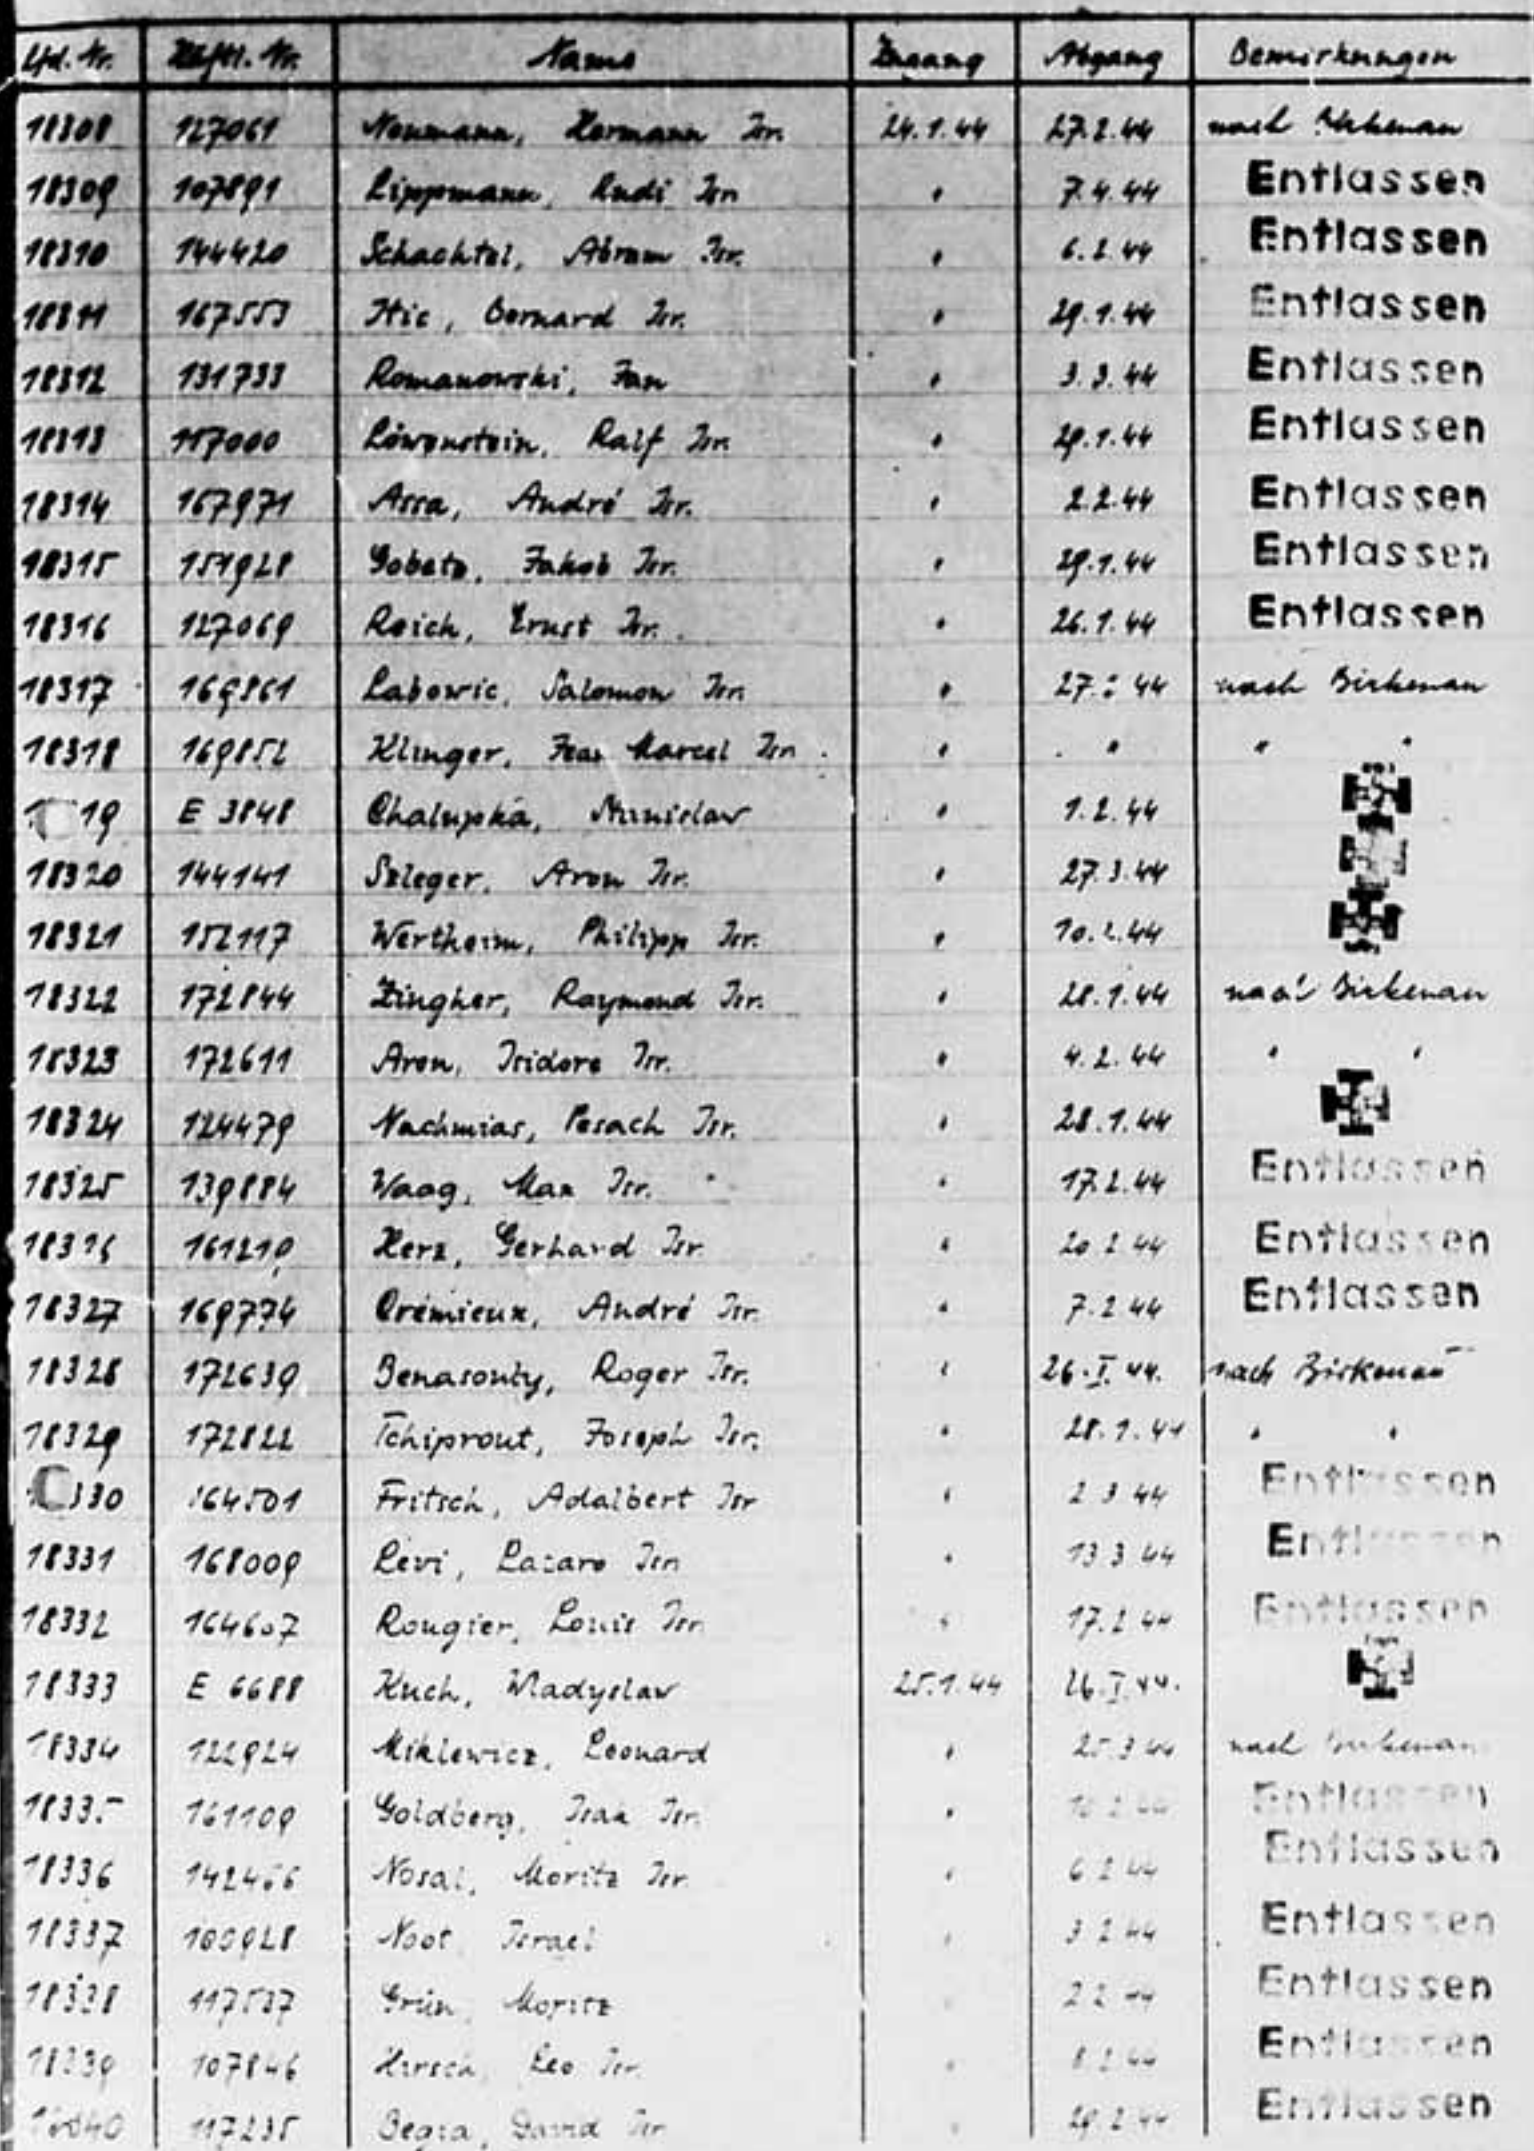 Lfd. Nr. Häftl. Nr. Name Zugang Abgang Bemerkungen
18308 127061 Neumann, Hermann Isr. 24.1.44 27.2.44 nach Birkenau
18309 107891 Lippmann, Rudi Isr. " 7.4.44 Entlassen
18310 144420 Schachtel, Abram Isr. " 6.2.44 Entlassen
18311 167553 Itic, Bernard Isr. " 29.1.44 Entlassen
18312 131733 Romanowski, Jan " 3.3.44 Entlassen
18313 117000 Löwenstein, Ralf Isr. " 29.1.44 Entlassen
18314 167971 Assa, André Isr. " 2.2.44 Entlassen
18315 151928 Gobetz, Jakob Isr. " 29.1.44 Entlassen
18316 127069 Reich, Ernst Isr. " 26.1.44 Entlassen
18317 169861 Labowic, Salomon Isr. " 27. 44 nach Birkenau
18318 169852 Klinger, Jean Marcel Isr. " " " "
19 E 3848 Chalupka, Stanislaw " 1.2.44
18320 144141 Szleger, Aron Isr. " 27.3.44
18321 152117 Wertheim, Philipp Isr. " 10.2.44
18322 172844 Zingher, Raymond Isr. " 28.1.44 nach Birkenau
18323 172611 Aron, Isidore Isr. " 4.2.44 " "
18324 124479 Nachmias, Pesach Isr. " 28.1.44
18325 139884 Waag, Max Isr. " 17.2.44 Entlassen
18326 161210 Herz, Gerhard Isr. " 20 2 44 Entlassen
18327 169774 Crémieux, André Isr. " 7.2 44 Entlassen
18328 172639 Benasouly, Roger Isr. " 26.I.44. nach Birkenau
18329 172822 Tchiprout, Joseph Isr. " 28.1.44 " "
330 164501 Fritsch, Adalbert Isr " 2 3 44 Entlassen
18331 168009 Levi, Lazare Isr. " 13 3 44 Entlassen
18332 164607 Rougier, Louis Isr. " 17.2 44 Entlassen
18333 E 6688 Kuch, Wladyslaw 25.1.44 26.I.44.
18334 122924 Miklewicz, Leonard " 25 3 44 nach Birkenau
18335 161109 Goldberg, Isak Isr. " Entlassen
18336 142466 Nosal, Moritz Isr. " 6 2 44 Entlassen
18337 100928 Noot Israel " 3 2 44 Entlassen
18338 117537 Grün, Moritz " 2 2 44 Entlassen
18339 107846 Hirsch, Leo Isr. " 8 2 44 Entlassen
117235 David Isr " 29 2 44 Entlassen